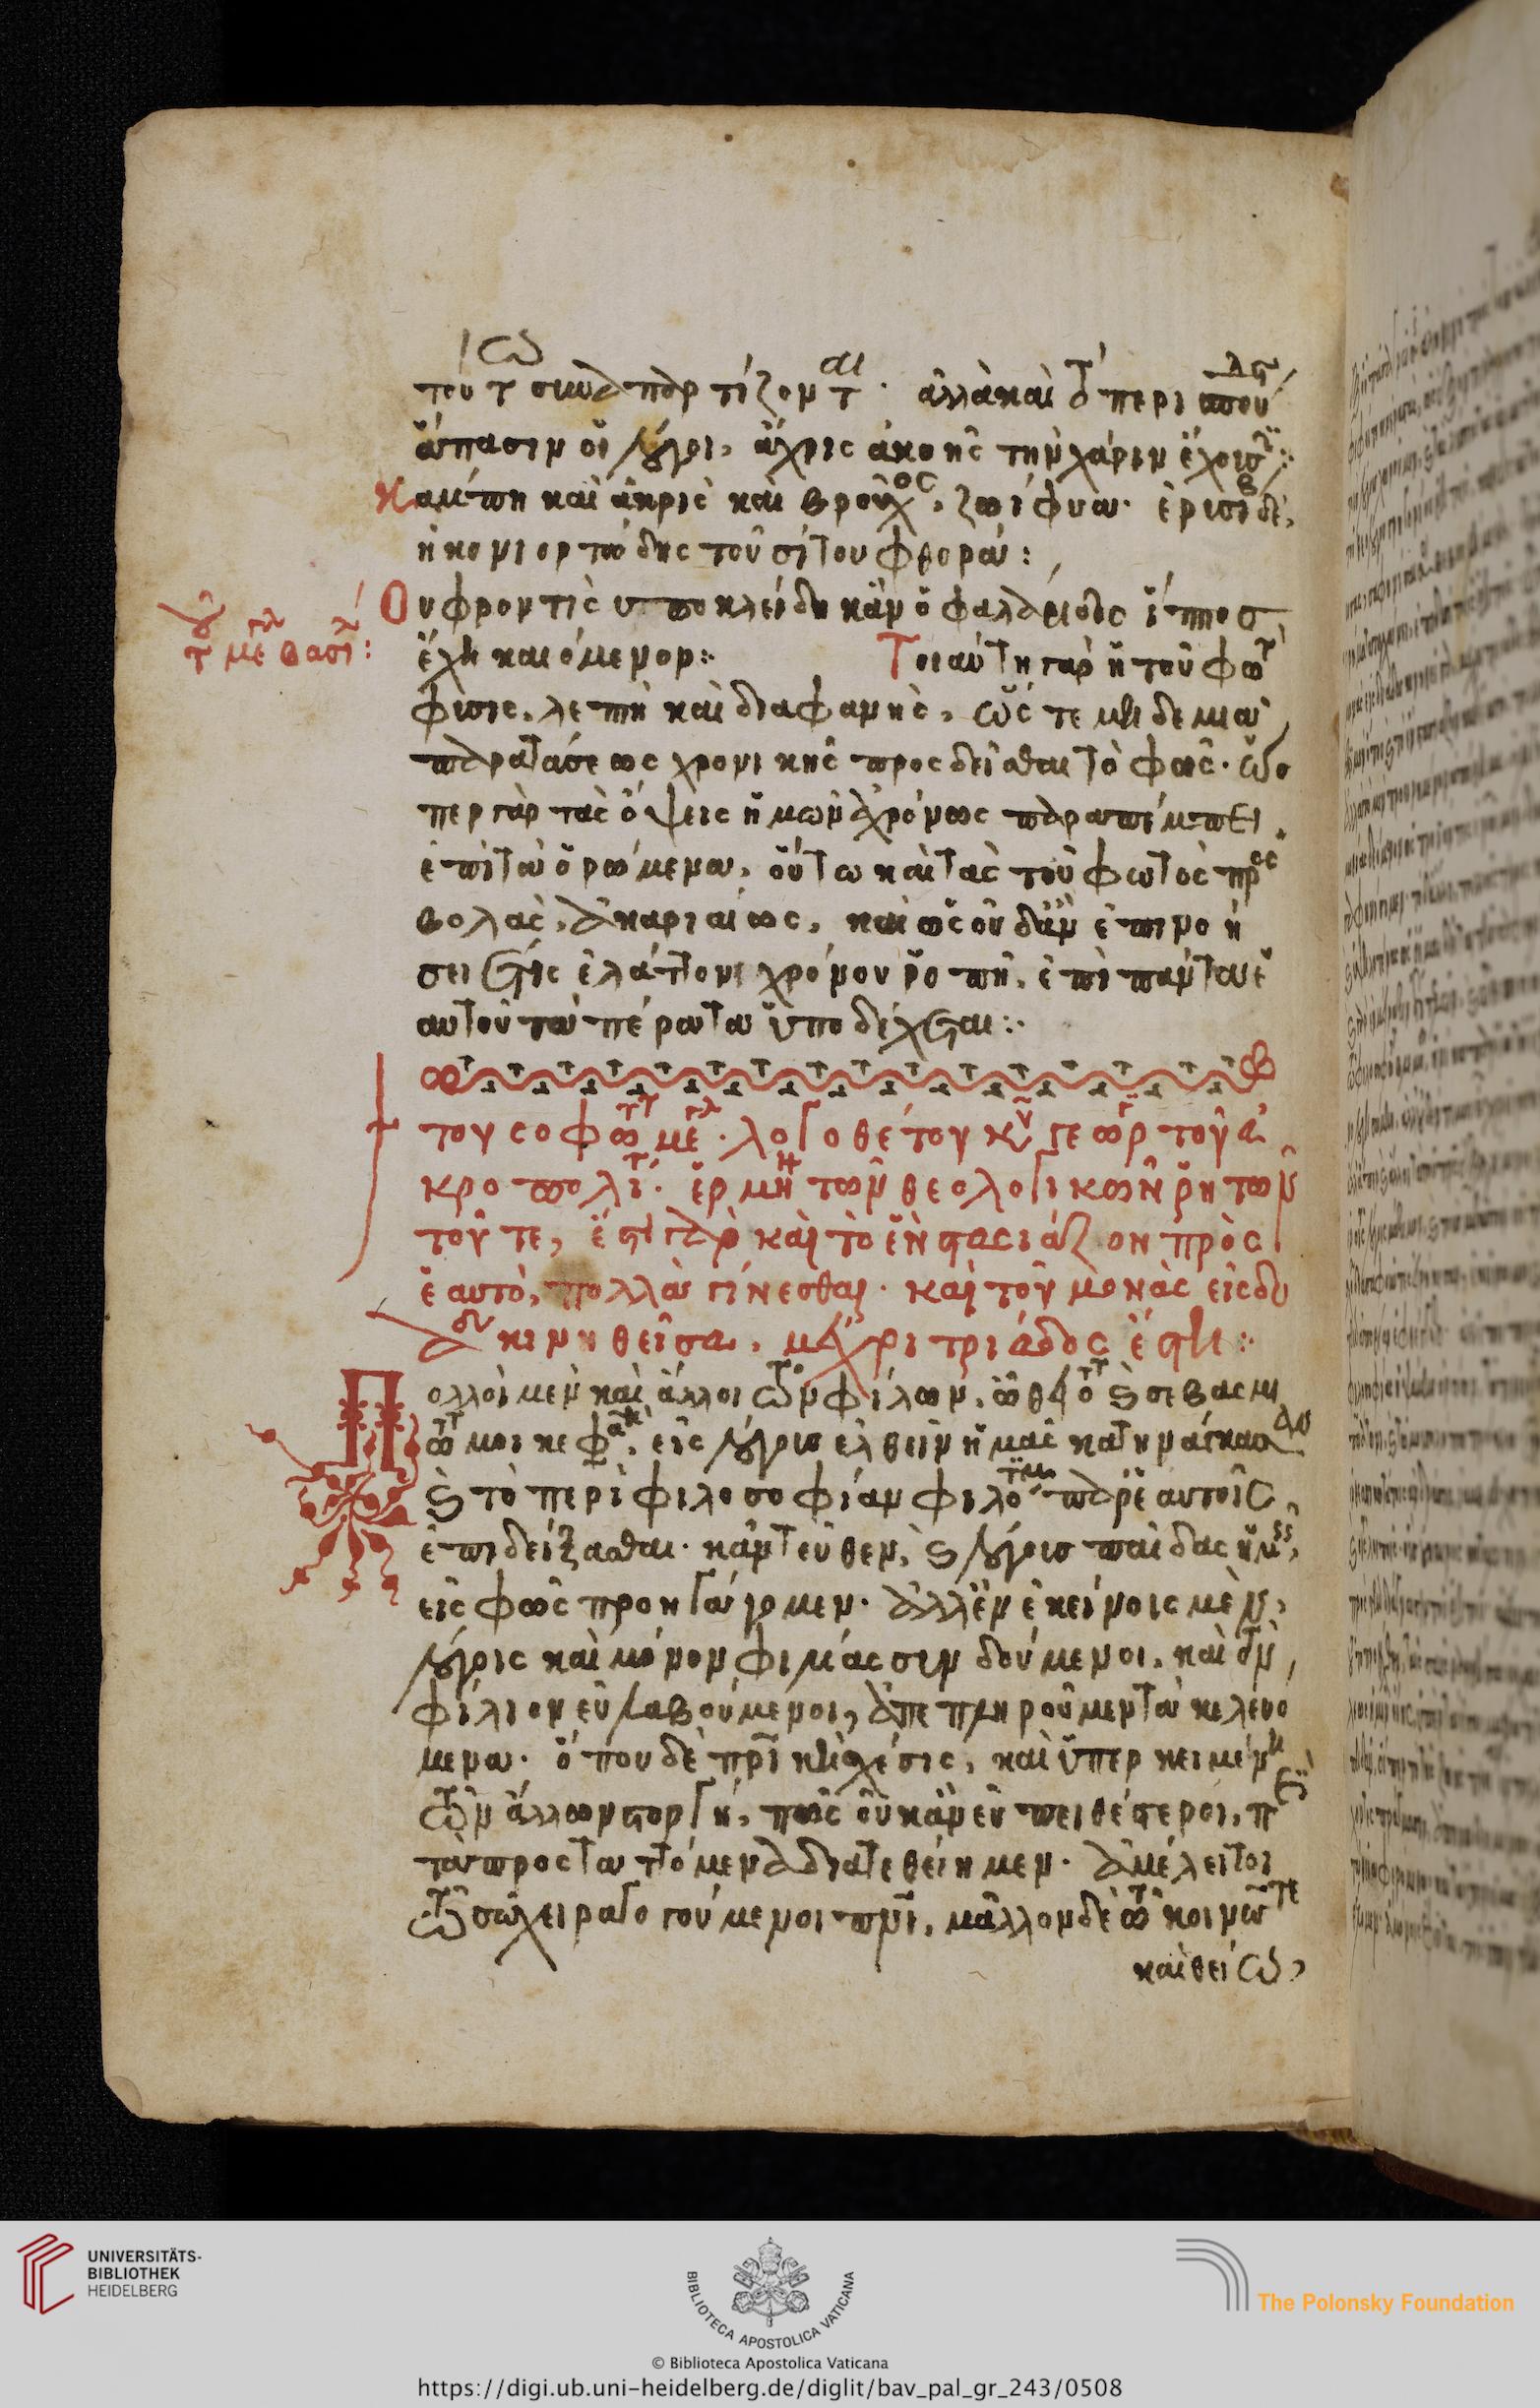 ἅπασιν οἱ λόγοι, ἄχρις ἀκοῆς τὴν χάριν ἔχουσι:
Κάμπη καὶ ἀκρὶς καὶ βροῦχος, ζωΰφια· ἐρισίβη δέ,
ἡ κονιορτώδης τοῦ σίτου φθορά:
τοῦ μεγάλου βασιλείου:
Οὐ φροντὶς
ἔχῃ καιόμενον: Τοιαύτη γὰρ ἡ τοῦ φωτὸς
φύσις, λεπτὴ καὶ διαφανής, ὥστε μηδεμιᾶς
παρατάσεως χρονικῆς προσδεῖσθαι τὸ φῶς· ὥσ
περ γὰρ τὰς ὄψεις ἡμῶν ἀχρόνως παραπέμπει
ἐπὶ τὰ ὁρώμενα, οὕτω καὶ τὰς τοῦ φωτὸς προσ
βολάς, ἀκαριαίως, καὶ ὡς οὐδ' ἂν ἐπινοή
σειέ τις ἐλάττονι χρόνου ῥοπῇ, ἐπὶ πάντα
αὐτοῦ τὰ πέρατα ὑποδέχεται:
τοῦ σοφωτάτου μεγάλου λογοθέτου κυροῦ γεωργίου τοῦ ἀ
κροπολίτου· ἑρμηνεία τῶν θεολογικῶν ῥητῶν
τοῦ τε, ἔστι γὰρ καὶ τὸ ἓν στασιάζον πρὸς
ἑαυτό, πολλὰ γίνεσθαι· καὶ τοῦ μονὰς εἰς δυ
άδα κινηθεῖσα, μέχρι τριάδος ἔστη:
Πολλοὶ μὲν καὶ ἄλλοι τῶν φίλων, ὦ θειοτάτη καὶ σεβασμι
ωτάτη μοι κεφαλή, εἰς λόγους ἐλθεῖν ἡμᾶς κατηνάγκασαν
καὶ τὸ περὶ φιλοσοφίαν φιλότιμον παρ' ἑαυτοῖς
ἐπιδείξασθαι· κἀντεῦθεν, καὶ λόγους παῖδας ἡμεῖς,
εἰς φῶς προηγάγομεν· ἀλλ' ἐν ἐκείνοις μὲν,
λόγοις καὶ μόνον φιλίας συνδούμενοι, καὶ τὸν
φίλιον εὐλαβούμενοι, ἀπεπληροῦμεν τὰ κελευό
μενα· ὅπου δὲ πατρικὴ σχέσις, καὶ ὑπερκειμένη
τῶν ἄλλων στοργή, πῶς οὐκ ἂν εὐπειθέστεροι
τὰ προσταττόμενα διατεθείημεν· ἀμέλει τοι
τῷ σῷ χειραγωγούμενοι πνεύματι, μᾶλλον δὲ τῷ κοινῷ τε
καὶ θείῳ,
UNIVERSITÄTS-
BIBLIOTHEK
HEIDELBERG
BIBLIOTECA APOSTOLICA VATICANA
The Polonsky Foundation
© Biblioteca Apostolica Vaticana
https://digi.ub.uni-heidelberg.de/diglit/bav_pal_gr_243/0508